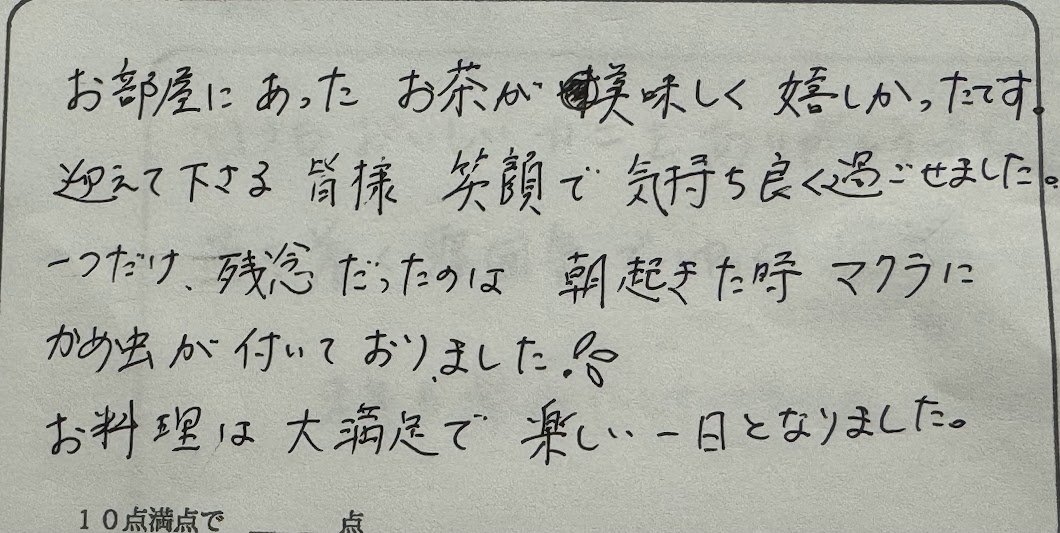 お部屋にあった お茶が美味しく 嬉しかったです。
迎えて下さる 皆様 笑顔で 気持ち良く過ごせました。
一つだけ、残念だったのは 朝起きた時 マクラに
かめ虫が付いておりました💦
お料理は 大満足で 楽しい一日となりました。
10点満点で 点